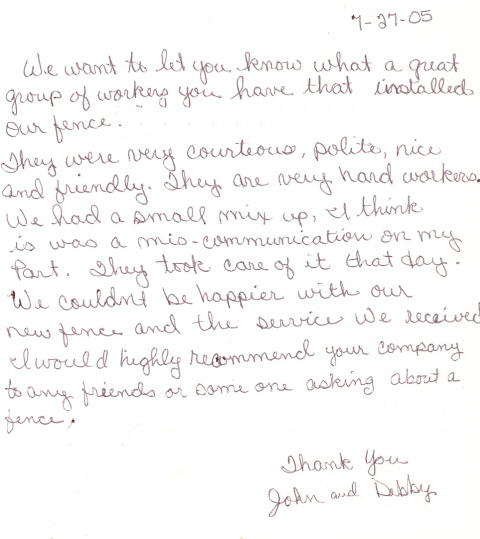 7-27-05
We want to let you know what a great
group of workers you have that installed
our fence.
They were very courteous, polite, nice
and friendly. They are very hard workers.
We had a small mix up, I think
is was a mis-communication on my
Part. They took care of it that day.
We couldn't be happier with our
new fence and the service we received
I would highly recommend your company
to any friends or some one asking about a
fence.
Thank You
John and Debby